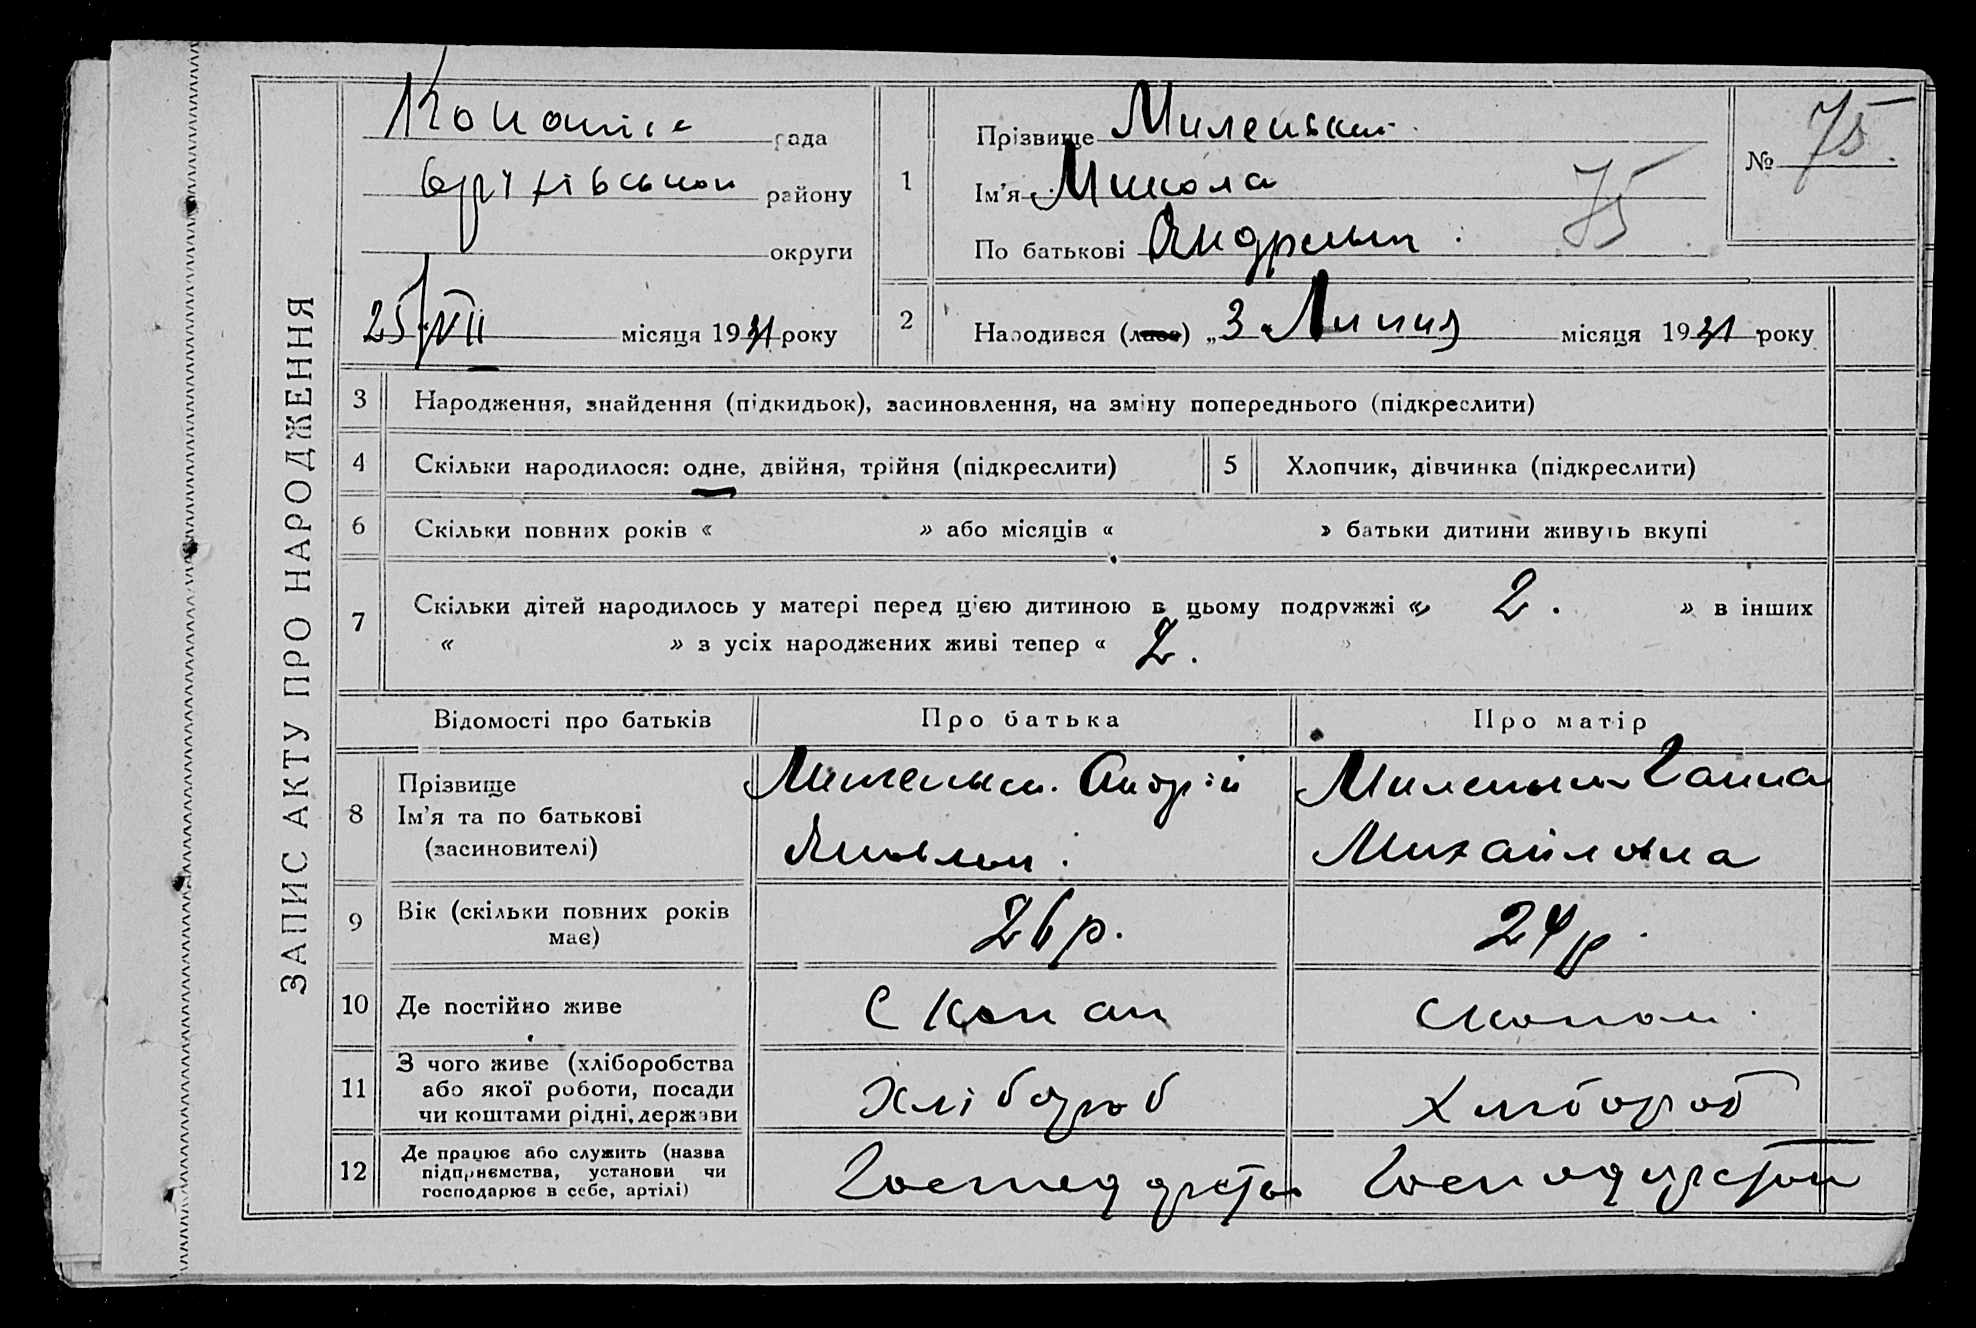 ЗАПИС АКТУ ПРО НАРОДЖЕННЯ
рада
району
округи
25/VII місяця 1931 року
1
Прізвище Миленький
Ім'я Микола
По батькові
75
№ 75.
2
Народився (лась) „3 Липня місяця 1931 року
3 Народження, знайдення (підкидьок), засиновлення, на зміну попереднього (підкреслити)
4 Скільки народилося: одне, двійня, трійня (підкреслити)
5 Хлопчик, дівчинка (підкреслити)
6 Скільки повних років « » або місяців « » батьки дитини живуть вкупі
7 Скільки дітей народилось у матері перед ц'єю дитиною в цьому подружжі « 2. » в інших
« » з усіх народжених живі тепер « 2. »
Відомості про батьків
Про батька
Про матір
8
Прізвище
Ім'я та по батькові
(засиновителі)
Андрій
Ганна
Михайловна
9
Вік (скільки повних років
має)
26 р.
24 р.
10 Де постійно живе
11
З чого живе (хліборобства
або якої роботи, посади
чи коштами рідні, держави
Хлібороб
Хлібороб
12
Де працює або служить (назва
підприємства, установи чи
господарює в себе, артілі)